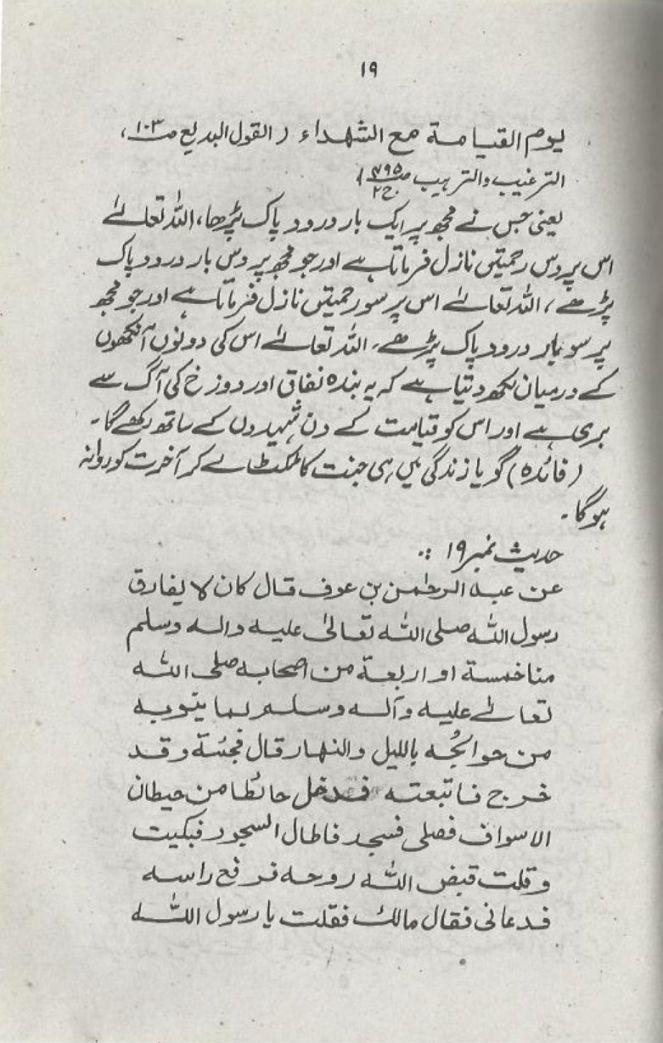 ۱۹
یوم القیامۃ مع الشھداء (القول البدیع ص۱۰۳،
الترغیب والترہیب ص۴۹۵ ج۲)
یعنی جس نے مجھ پر ایک بار درود پاک پڑھا، اللہ تعالےٰ
اس پر دس رحمتیں نازل فرماتا ہے اور جو مجھ پر دس بار درود پاک
پڑھے، اللہ تعالےٰ اس پر سو رحمتیں نازل فرماتا ہے اور جو مجھ
پر سو بار درود پاک پڑھے، اللہ تعالےٰ اس کی دونوں آنکھوں
کے درمیان لکھ دیتا ہے کہ یہ بندہ نفاق اور دوزخ کی آگ سے
بری ہے اور اس کو قیامت کے دن شہیدوں کے ساتھ رکھے گا۔
(فائدہ) گویا زندگی میں ہی جنت کا ٹکٹ لے کر آخرت کو روانہ
ہوگا۔
حدیث نمبر ۱۹ :.
عن عبد الرحمٰن بن عوف قال کان لا یفارق
رسول اللہ صلی اللہ تعالیٰ علیہ والہ وسلم
منا خمسۃ او اربعۃ من اصحابہ صلی اللہ
تعالےٰ علیہ وآلہ وسلم لما ینوبہ
من حوائجہ باللیل والنھار قال فجئتہ وقد
خرج فاتبعتہ فدخل حائطا من حیطان
الاسواف فصلی فسجد فاطال السجود فبکیت
وقلت قبض اللہ روحہ فرفع راسہ
فدعانی فقال مالک فقلت یا رسول اللہ